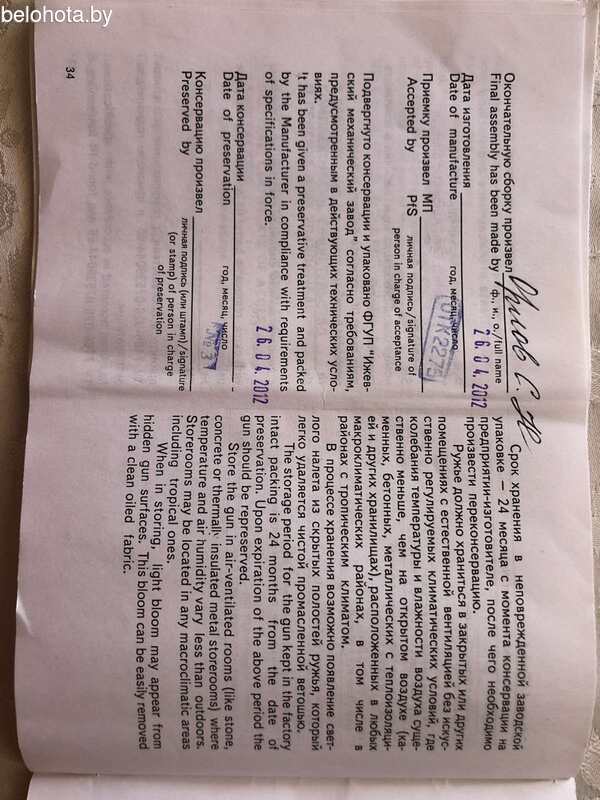 belohota.by
Окончательную сборку произвел Орлов С. Н.
Final assembly has been made by ф., и., о./full name
Дата изготовления 26.04.2012
Date of manufacture год, месяц, число
Приемку произвел МП ОТК2275
Accepted by PfS личная подпись/signature of
person in charge of acceptance
Подвергнуто консервации и упаковано ФГУП "Ижев-
ский механический завод" согласно требованиям,
предусмотренным в действующих технических усло-
виях.
It has been given a preservative treatment and packed
by the Manufacturer in compliance with requirements
of specifications in force.
Дата консервации 26.04.2012
Date of preservation год, месяц, число
Консервацию произвел № 31
Preserved by личная подпись (или штамп)/signature
(or stamp) of person in charge
of preservation
34
Срок хранения в неповрежденной заводской
упаковке — 24 месяца с момента консервации на
предприятии-изготовителе, после чего необходимо
произвести переконсервацию.
Ружье должно храниться в закрытых или других
помещениях с естественной вентиляцией без искус-
ственно регулируемых климатических условий, где
колебания температуры и влажности воздуха суще-
ственно меньше, чем на открытом воздухе (ка-
менных, бетонных, металлических с теплоизоляци-
ей и других хранилищах), расположенных в любых
макроклиматических районах, в том числе в
районах с тропическим климатом.
В процессе хранения возможно появление свет-
лого налета из скрытых полостей ружья, который
легко удаляется чистой промасленной ветошью.
The storage period for the gun kept in the factory
intact packing is 24 months from the date of
preservation. Upon expiration of the above period the
gun should be represerved.
Store the gun in air-ventilated rooms (like stone,
concrete or thermally insulated metal storerooms) where
temperature and air humidity vary less than outdoors.
Storerooms may be located in any macroclimatic areas
including tropical ones.
When in storing, light bloom may appear from
hidden gun surfaces. This bloom can be easily removed
with a clean oiled fabric.